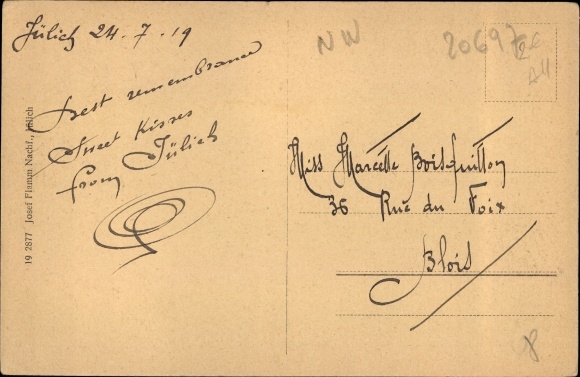 Jülich 24-7-19
Best remembrance
Sweet Kisses
from Jülich
19 2877 Josef Flamm Nachf., Jülich
NW
20697
Miss Marcelle Boisguillon
36 Rue du Foix
Blois